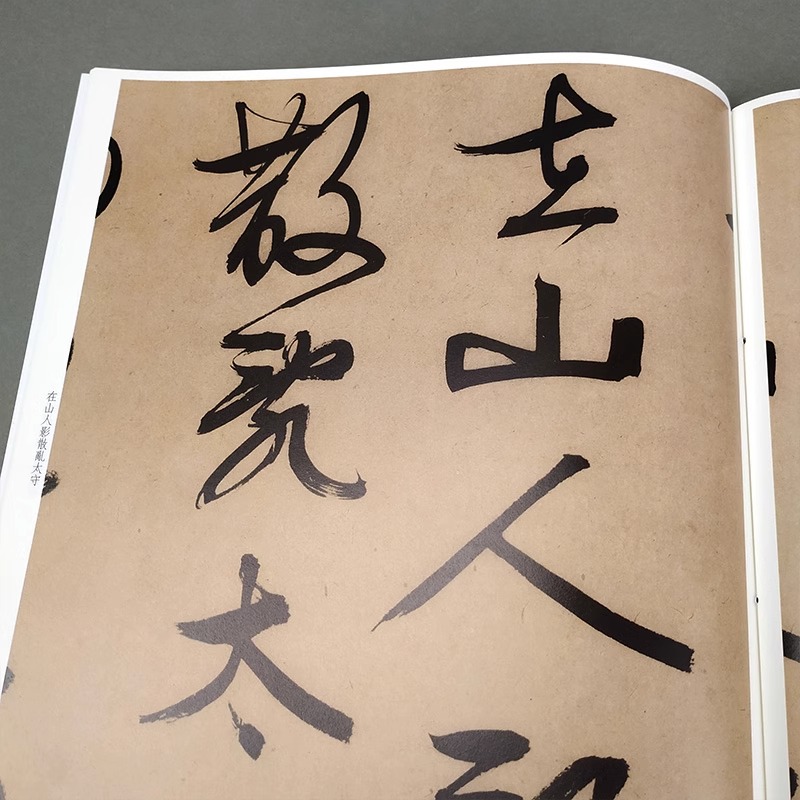 在山人影
散亂太
在山人影散亂太守